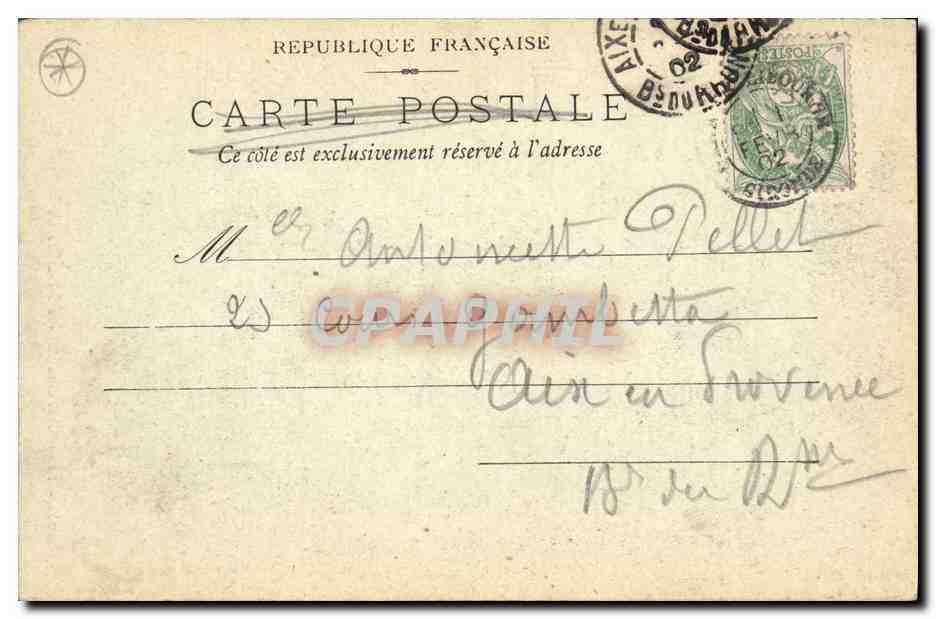 REPUBLIQUE FRANÇAISE
CARTE POSTALE
Ce côté est exclusivement réservé à l'adresse
AIXE
02
Bs DU RHONE
POSTES
02
Melle Antoinette Pellet
25 cours Gambetta
Aix en Provence
Bs du Rhne
CPAPHIL